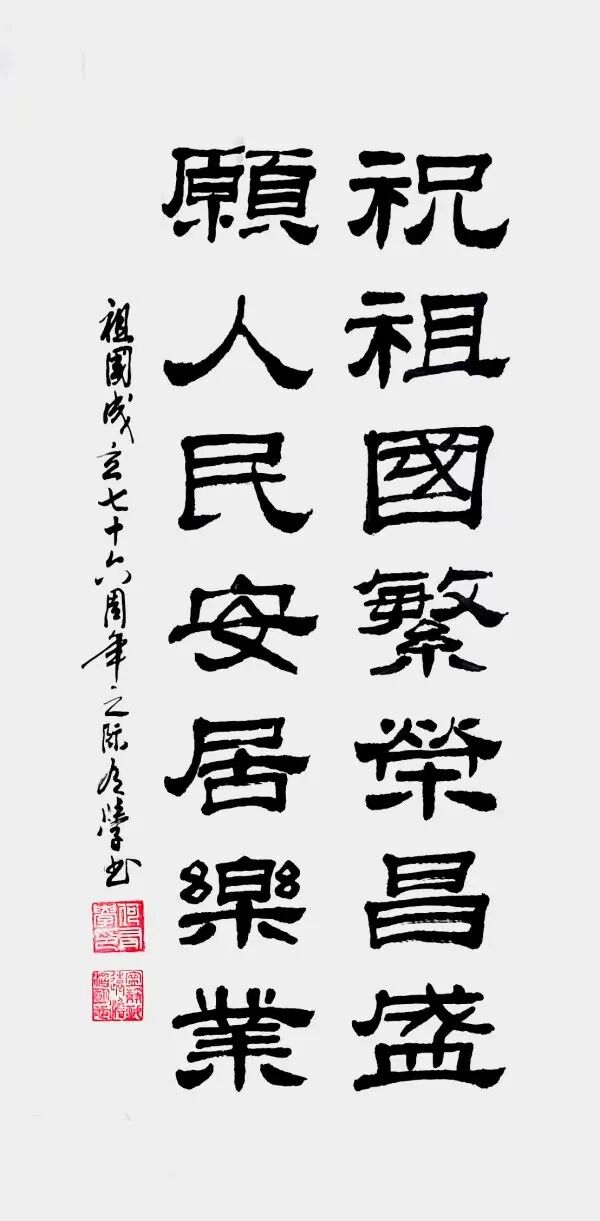 祝祖國繁榮昌盛
願人民安居樂業
祖國成立七十六周年之际
書